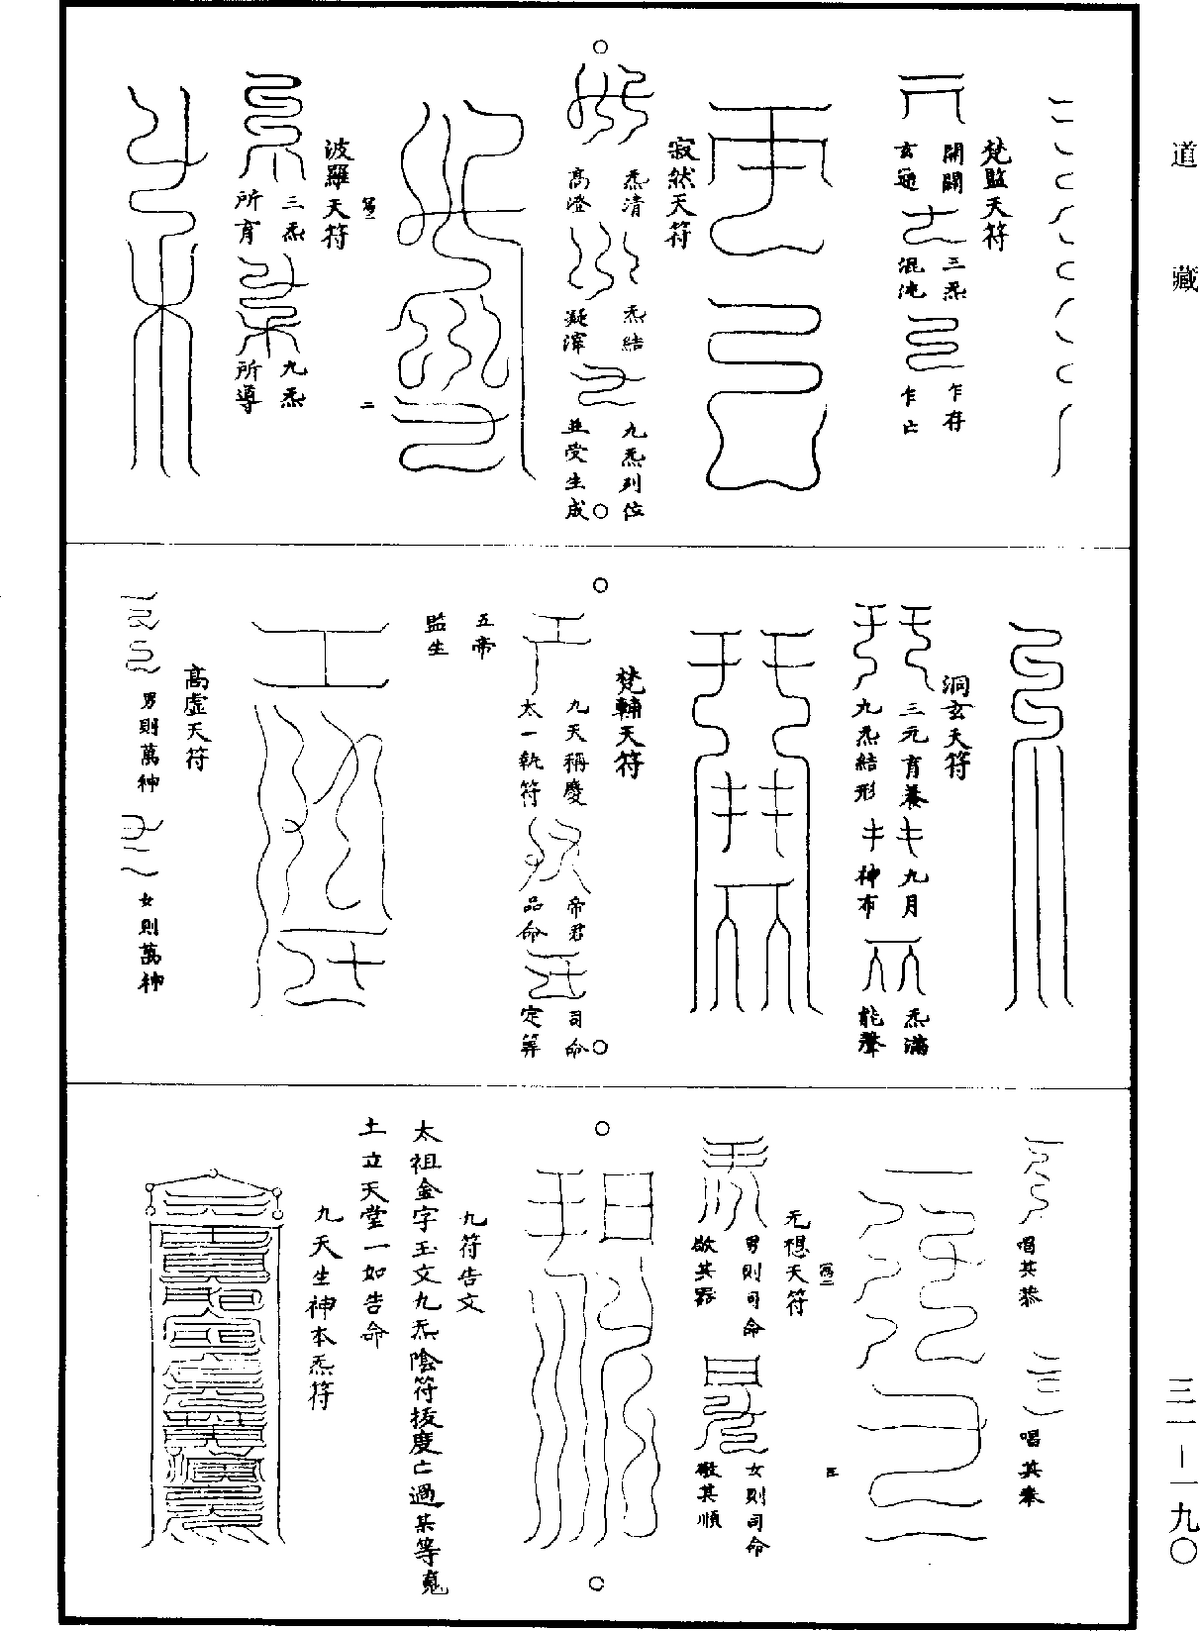 道藏
梵監天符
開闢
玄通
三炁
混沌
乍存
乍亡
寂然天符
炁清
高澄
炁結
凝滓
九炁列位
並受生成
波羅天符
三炁
所育
九炁
所導
二
洞玄天符
三元育養
九炁結形
九月
神布
炁滿
能聲
梵輔天符
九天稱慶
太一執符
帝君
品命
司命
定筭
五帝
監生
高虛天符
男則萬神
女則萬神
唱其恭
唱其奉
无想天符
男則司命
敬其
女則司命
敬其順
三
九符告文
太祖金字玉文九炁陰符拔度亡過某等魂
土立天堂一如告命
九天生神本炁符
三一—一九〇